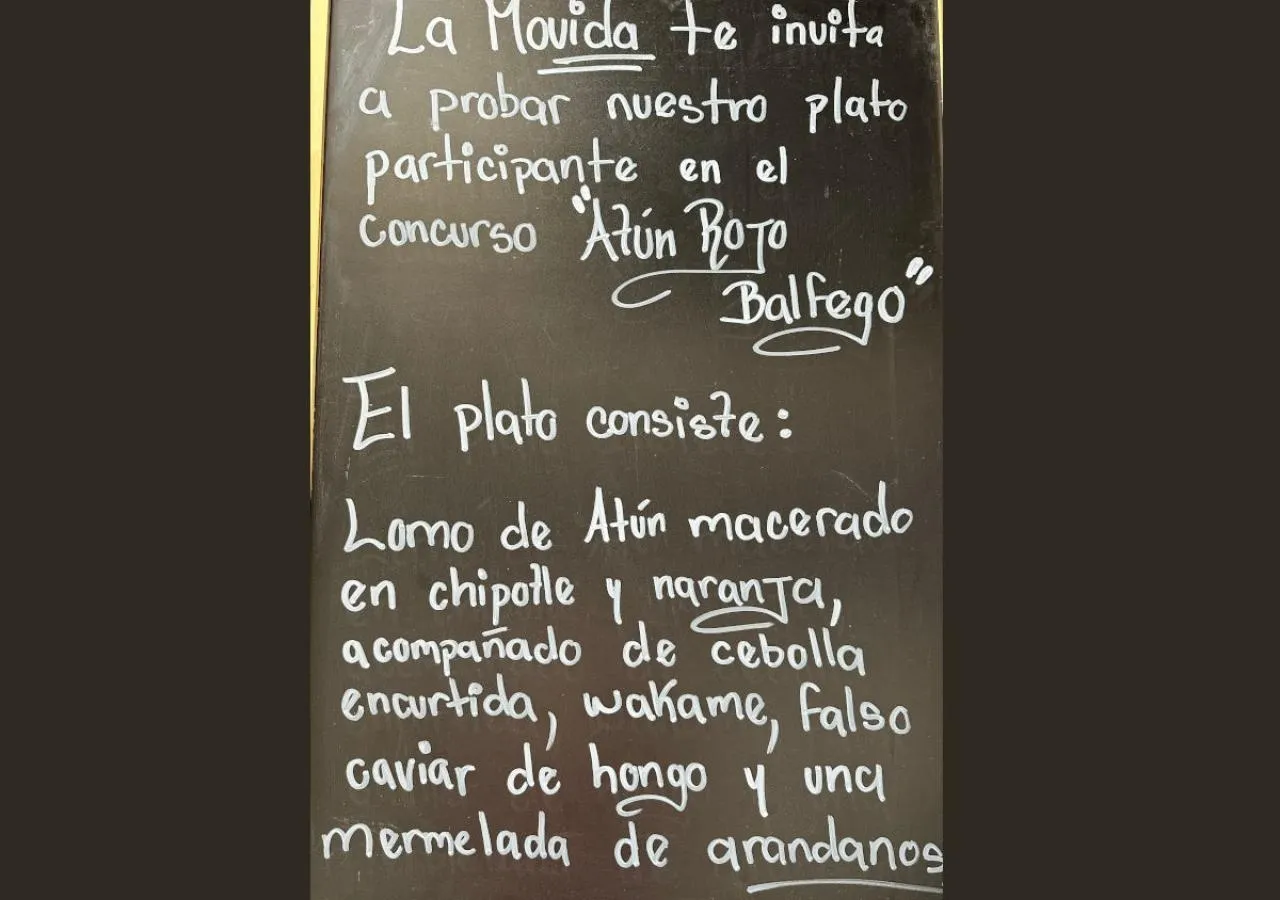 La Movida te invita
a probar nuestro plato
participante en el
concurso "Atún Rojo
Balfego"
El plato consiste:
Lomo de Atún macerado
en chipotle y naranja,
acompañado de cebolla
encurtida, wakame, falso
caviar de hongo y una
mermelada de arandanos